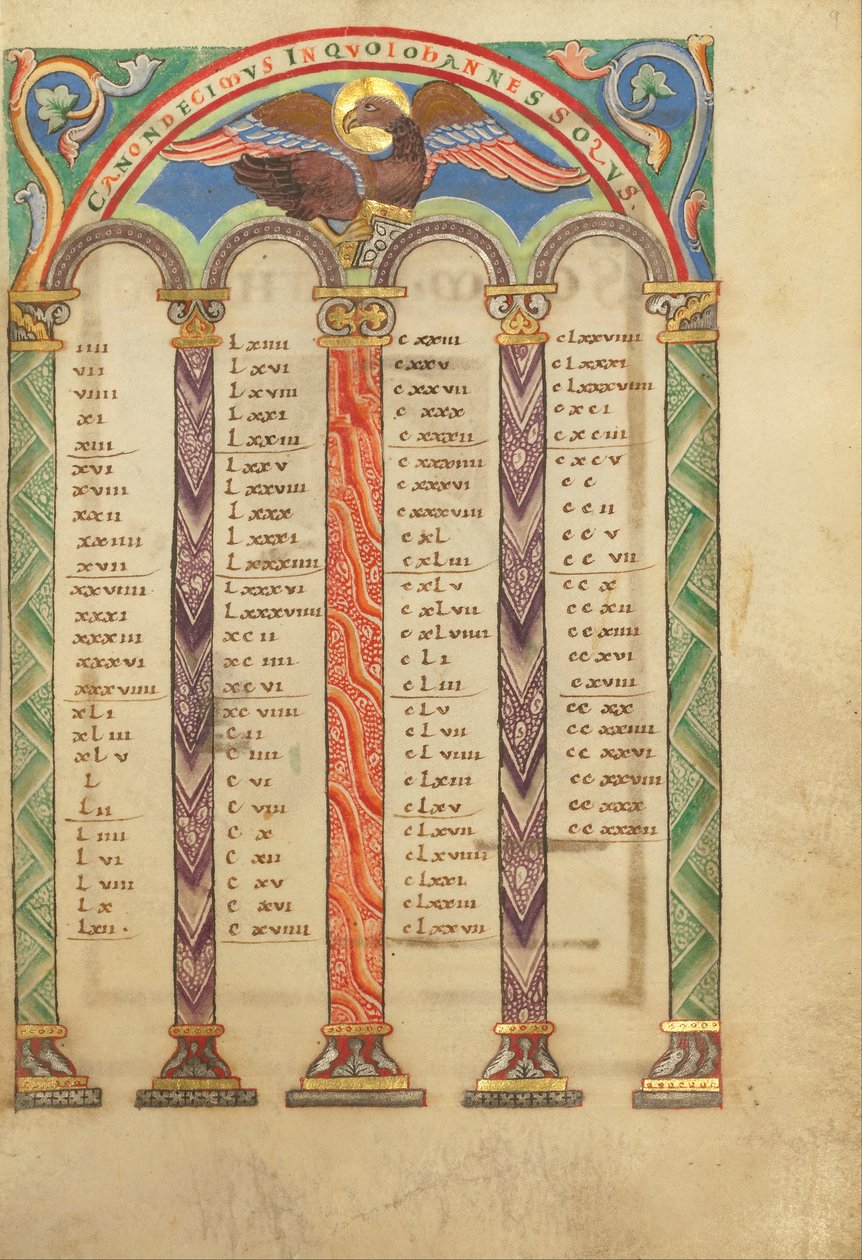 9
CANON DECIMVS IN QVO IOHANNES SOLVS.
iiii
vii
viiii
xi
xiii
xvi
xviii
xxii
xxiiii
xvii
xxviiii
xxxi
xxxiii
xxxvi
xxxviiii
xLi
xLiii
xLv
L
Lii
Liiii
Lvi
Lviii
Lx
Lxii.
Lxiiii
Lxvi
Lxviii
Lxxi
Lxxiii
Lxxv
Lxxviii
Lxxx
Lxxxi
Lxxxiiii
Lxxxvi
Lxxxviiii
xcii
xciiii
xcvi
xcviiii
cii
ciiii
cvi
cviii
cx
cxii
cxv
cxvi
cxviiii
cxxiii
cxxv
cxxvii
cxxx
cxxxii
cxxxiiii
cxxxvi
cxxxviii
cxL
cxLiii
cxLv
cxLvii
cxLviiii
cLi
cLiii
cLv
cLvii
cLviiii
cLxiii
cLxv
cLxvii
cLxviiii
cLxxi
cLxxiii
cLxxvii
cLxxviiii
cLxxxi
cLxxxviiii
cxci
cxciii
cxcv
cc
ccii
ccv
ccvii
ccx
ccxii
ccxiiii
ccxvi
cxviii
ccxx
ccxxiiii
ccxxvi
ccxxviii
ccxxx
ccxxxii